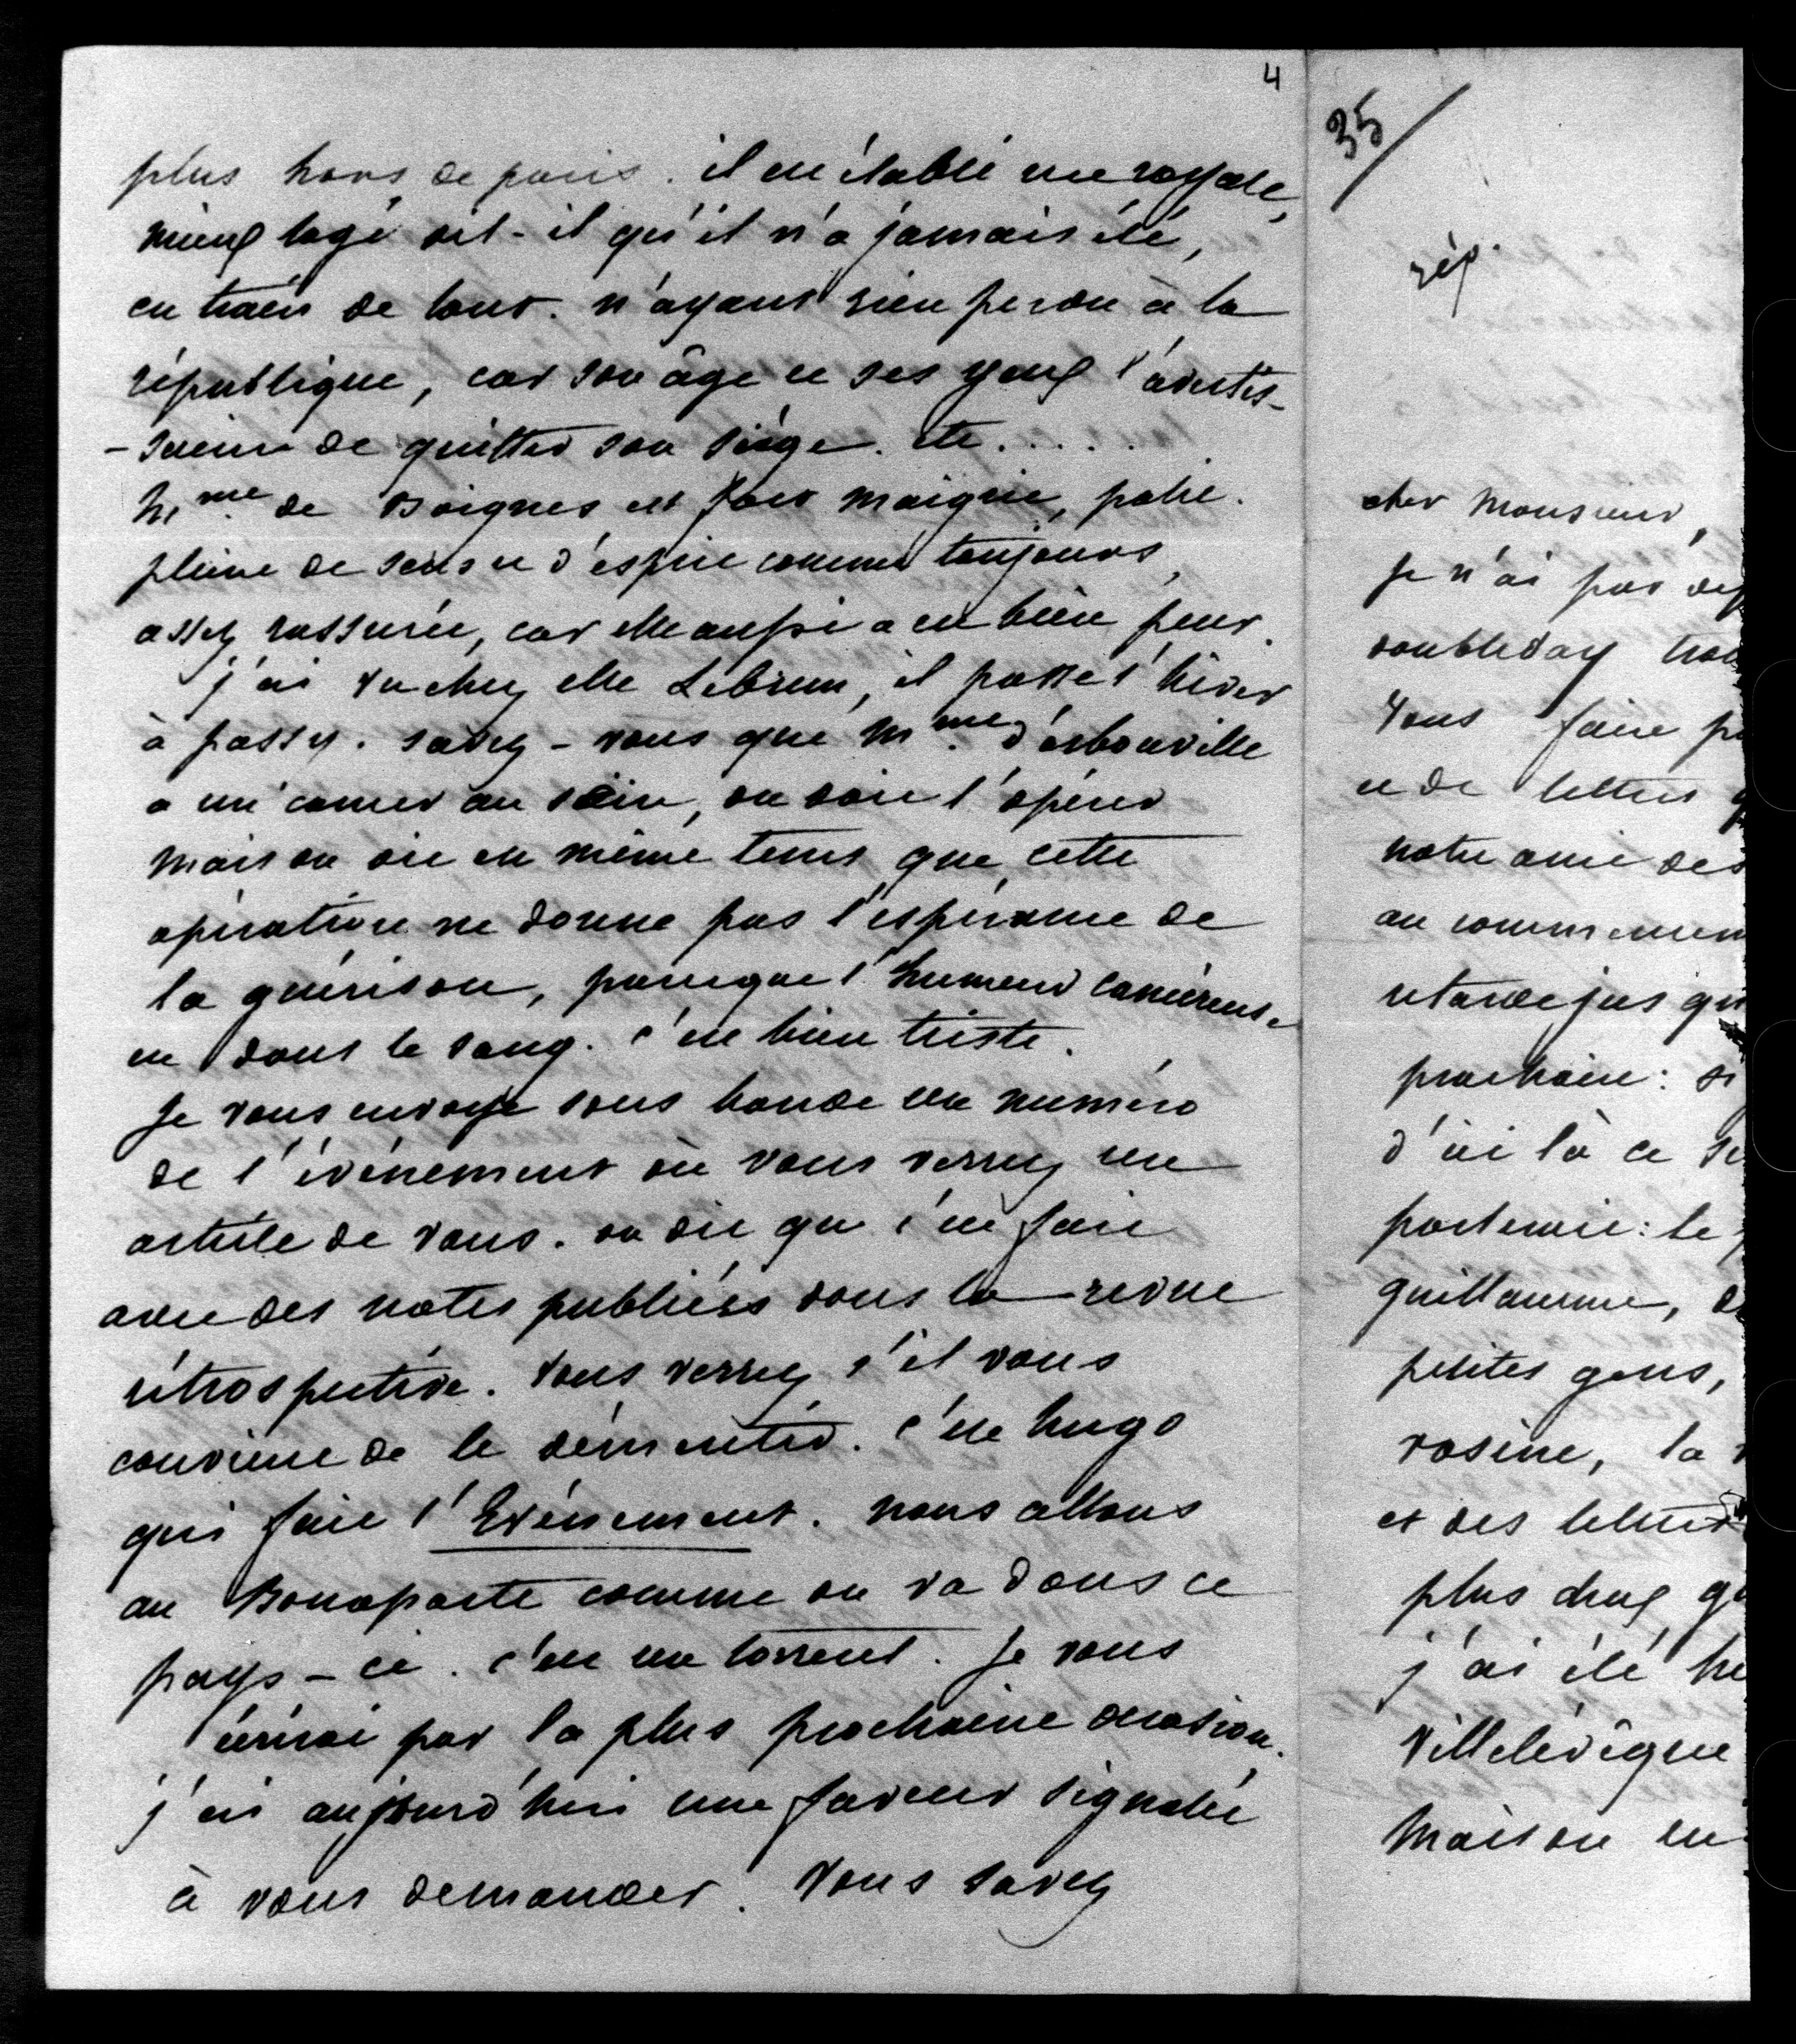 4
plus hors de paris. il est établi rue royale,
mieux logé dit-il qu'il n'a jamais été,
en train de tout. n'ayant rien perdu à la
république, car son âge et ses yeux l'avertis-
-saient de quitter son siège. etc.....
Mme de Boignes est fort maigrie, palie.
pleine de sens et d'esprit comme toujours,
assez rassurée, car elle aussi a eu bien peur.
j'ai vu chez elle Lebrun, il passe l'hiver
à passy. savez-vous que Mme d'arbouville
a un cancer au sein, on doit l'opérer
mais on dit en même tems que cette
opération ne donne pas l'espérance de
la guérison, parceque l'humeur cancéreuse
est dans le sang. c'est bien triste.
Je vous envoye sous bande un numéro
de l'évènement où vous verrez un
article de vous. on dit que c'est fait
avec des notes publiées dans la revue
rétrospective. Vous verrez s'il vous
convient de le démentir. c'est hugo
qui fait l'Evènement. nous allons
au Bonaparte comme on va dans ce
pays-ci. c'est un torrent. Je vous
écrirai par la plus prochaine occasion.
j'ai aujourd'hui une faveur signalée
à vous demander. Vous savez
35/
rép.
cher Monsieur,
Je n'ai pas
doubleday
Vous faire
et de lettres
notre ami des
au commencem
retarde jusqu
prochain: si
d'ici là ce
porterait: le
guillaume,
petites gens,
rosine, la
et des lettres
plus chez
j'ai été
Villelévêque
Maison